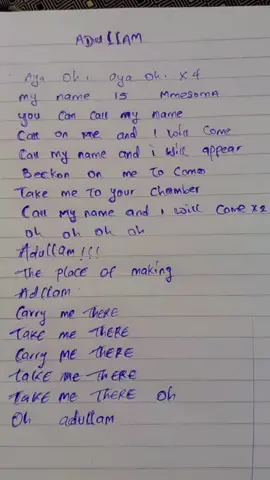 ADullAM
Aya Oh. aya oh. x4
my name is Mmesoma
you can call my name
Call on me and I will come
Call my name and i will appear
Beckon on me To Come
Take me To your chamber
Call my name and I will come x2
Oh oh oh oh
Adullam!!!
The place of making
Adllam
Carry me THERE
Take me THERE
Carry ME THERE
TAKE me THERE
TAKE me THERE oh
Oh adullam